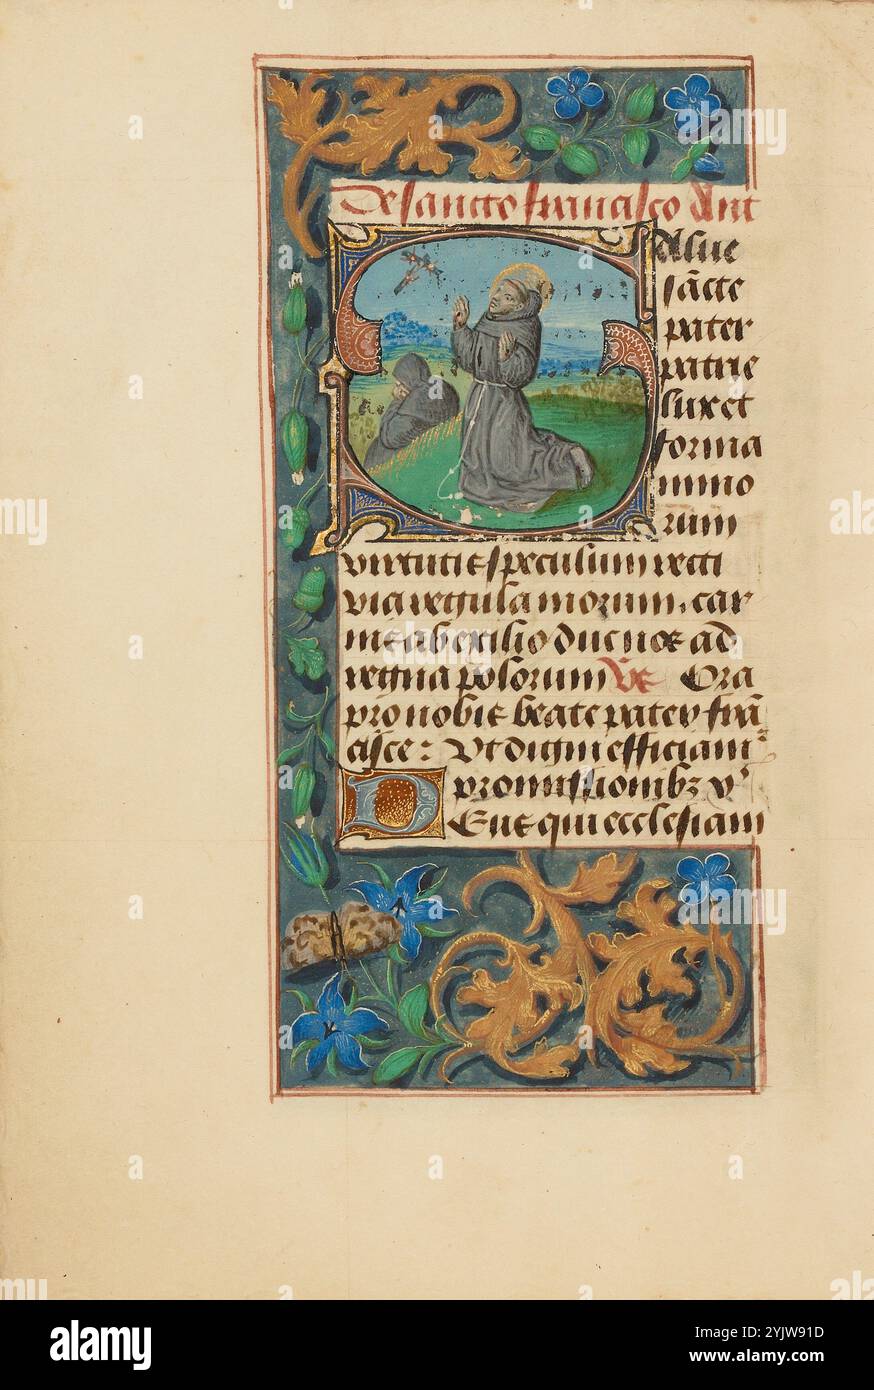 De sancto francisco Ant
Salue
sācte
pater
patrie
lux et
forma
mino
rum
virtutis speculum recti
via regula morum. car
nis ab exilio duc nos ad
regna polorum Vs Ora
pro nobis beate pater frā
cisce: Ut digni efficiam'
promissionib3 x'
Deus qui ecclesiam
alamy
Image ID: 2YJW91D
www.alamy.com